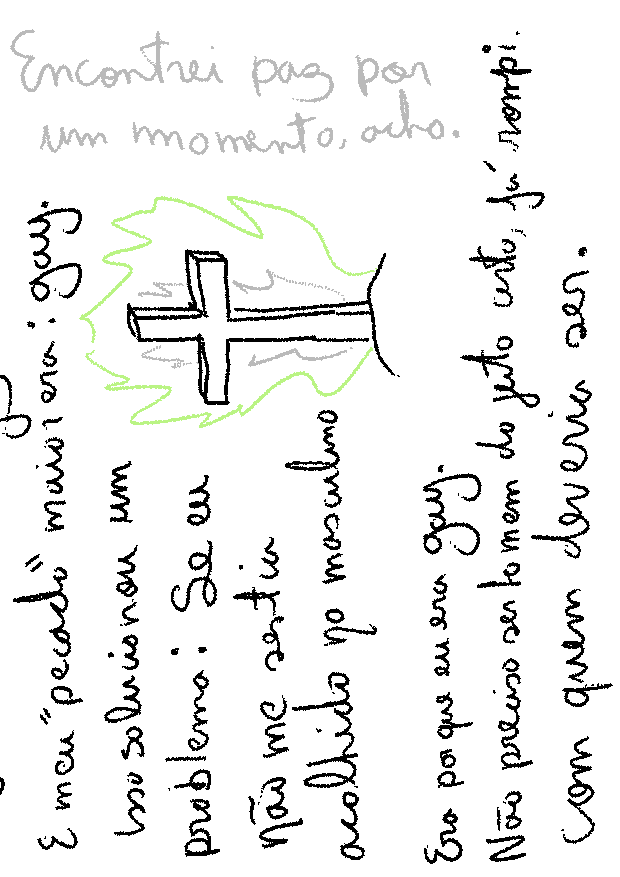 Encontrei paz por
um momento, acho.
E meu "pecado" maior era: gay.
Isso solucionou um
problema: Se eu
não me sentia
acolhido no masculino
Era porque eu era gay.
Não preciso ser homem do jeito certo, já rompi.
com quem deveria ser.